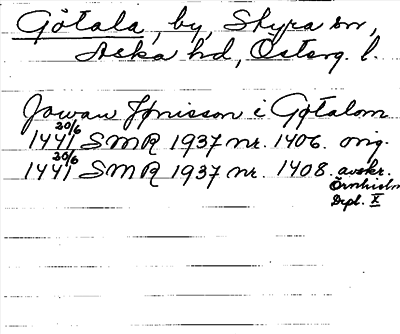 Götala, by, Skyra sn,
Aska hd, Österg. l.
Jowan Jönisson i Gøtalom
1441 30/6 SMR 1937 nr. 1406. orig.
1441 30/6 SMR 1937 nr. 1408. avskr.
Örnhielm
Dipl. X